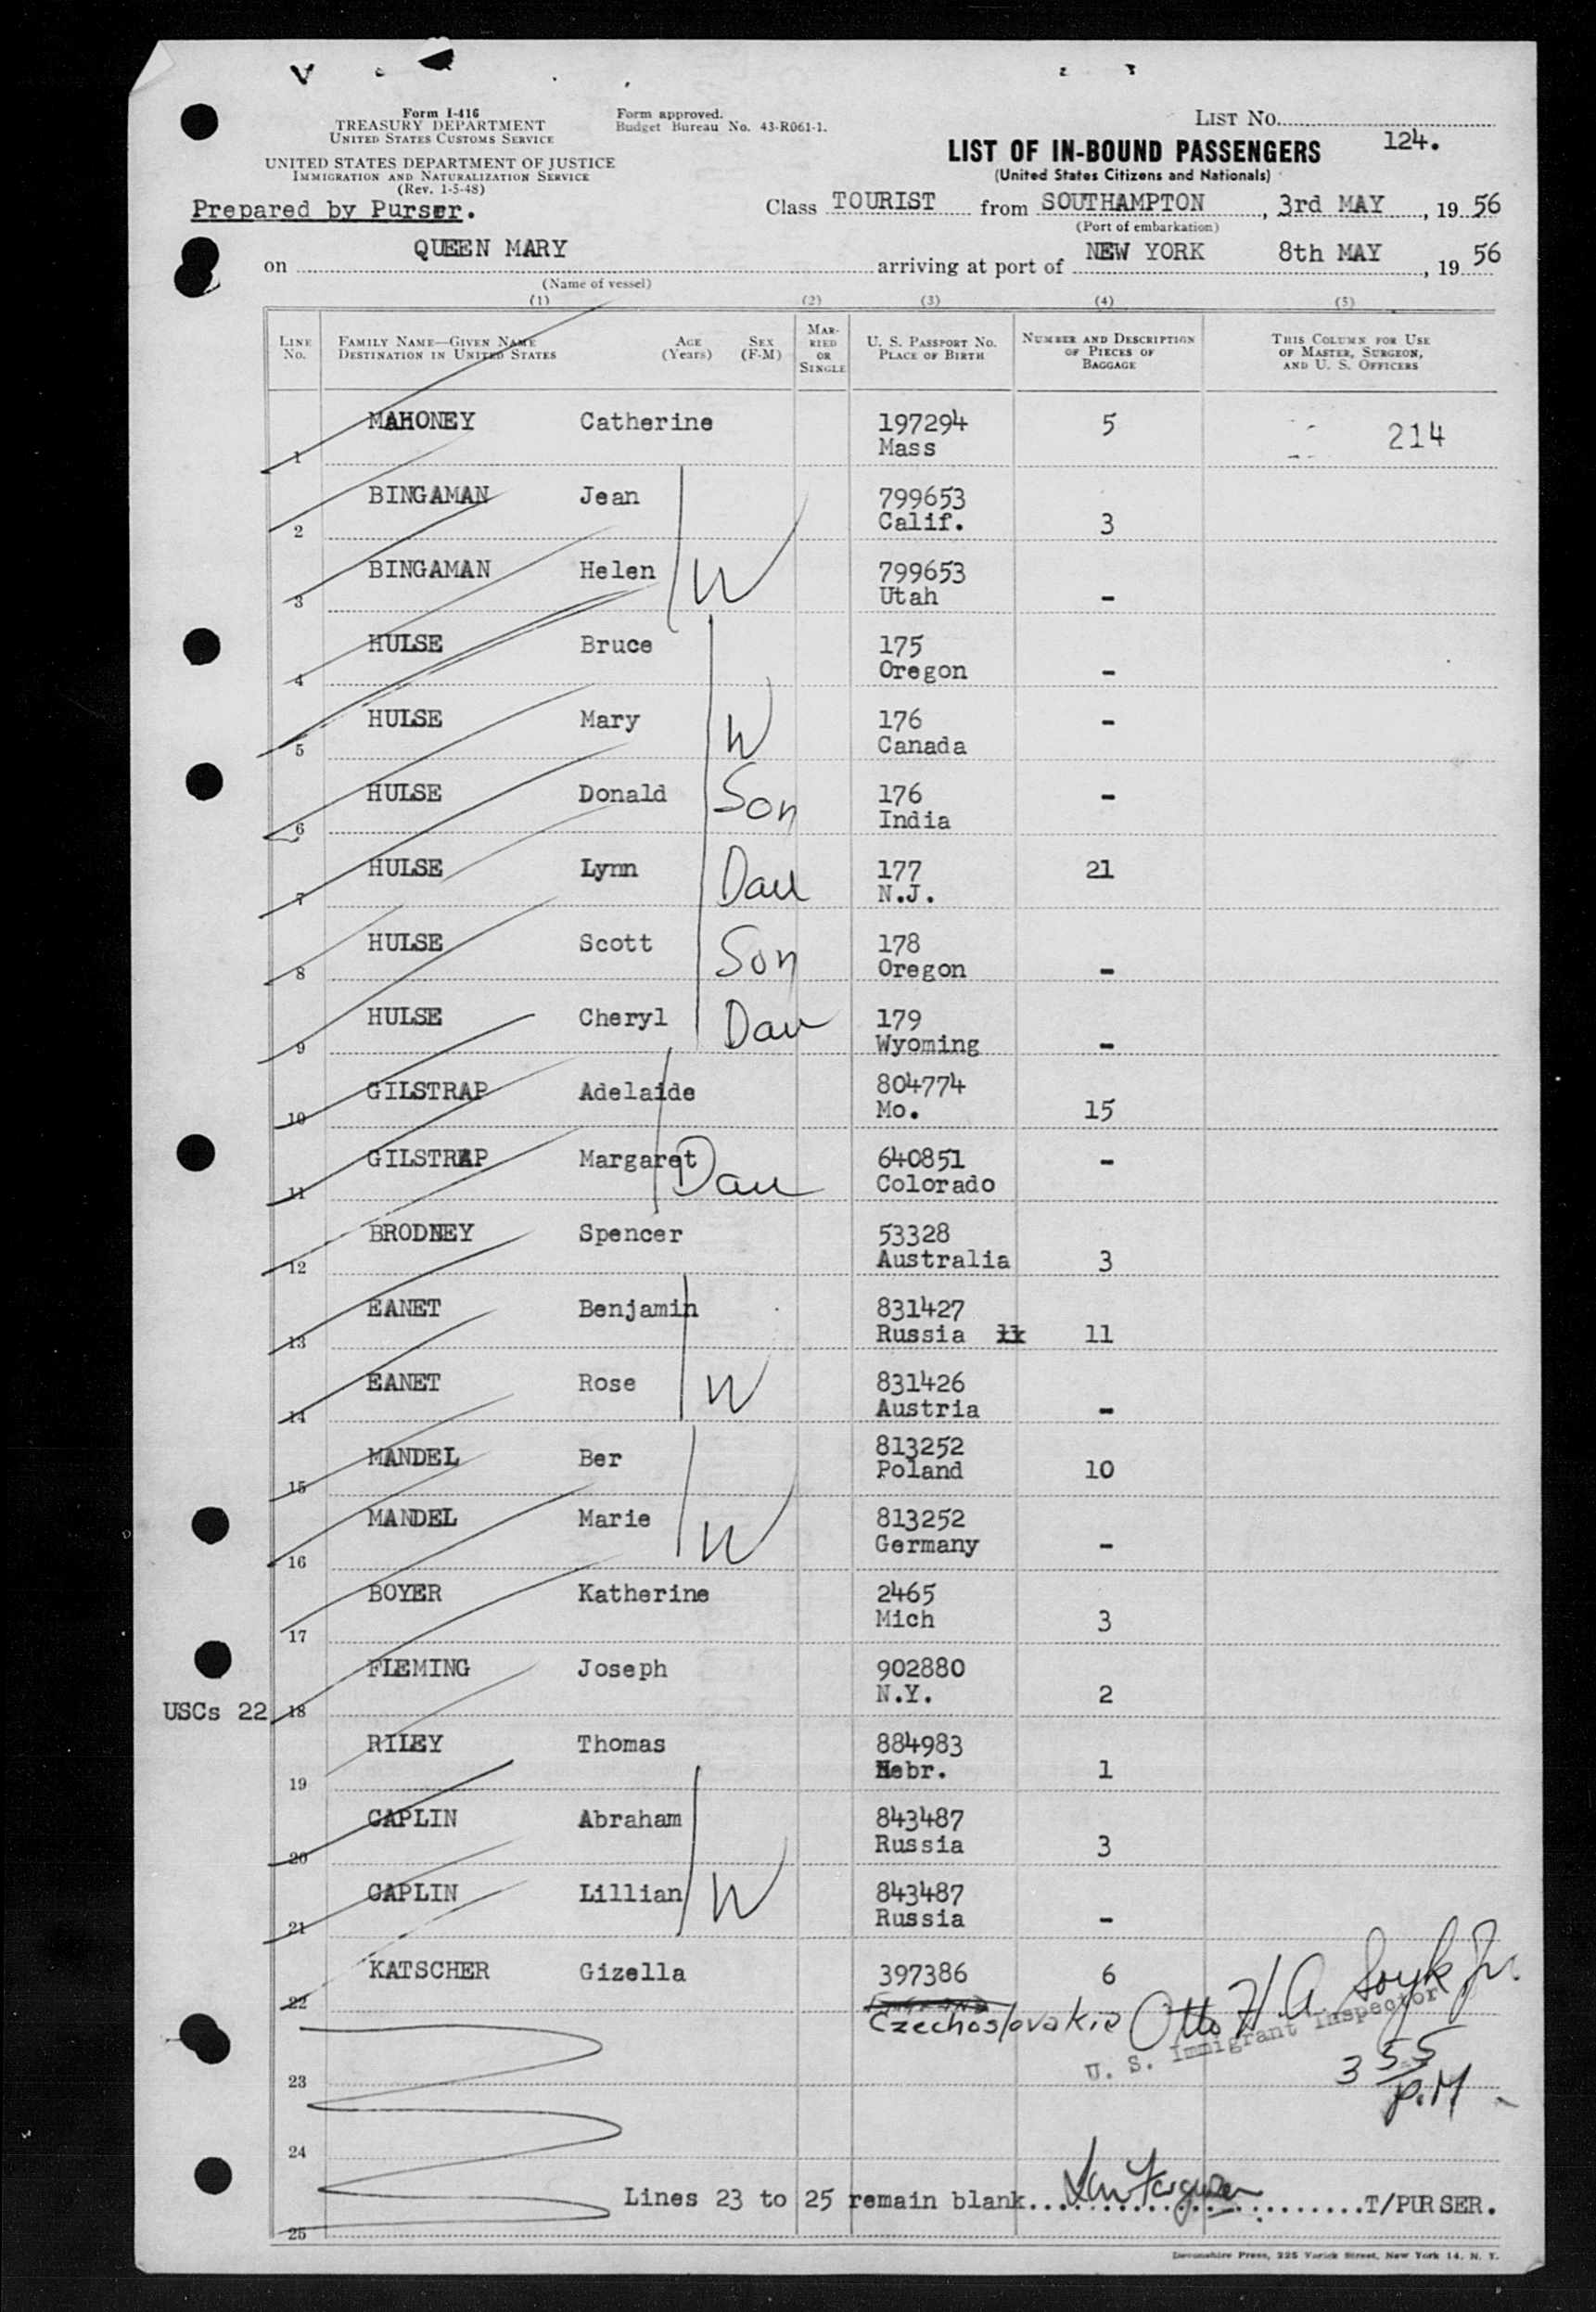 Form I-416
TREASURY DEPARTMENT
UNITED STATES CUSTOMS SERVICE
Form approved.
Budget Bureau No. 43-R061-1.
LIST NO.
124.
UNITED STATES DEPARTMENT OF JUSTICE
IMMIGRATION AND NATURALIZATION SERVICE
(Rev. 1-5-48)
LIST OF IN-BOUND PASSENGERS
(United States Citizens and Nationals)
Prepared by Purser.
Class TOURIST from SOUTHAMPTON, 3rd MAY, 19 56
(Port of embarkation)
on QUEEN MARY arriving at port of NEW YORK 8th MAY, 19 56
(Name of vessel)
(1) (2) (3) (4) (5)
LINE No. FAMILY NAME—GIVEN NAME DESTINATION IN UNITED STATES AGE (Years) SEX (F-M) MARRIED OR SINGLE U. S. PASSPORT NO. PLACE OF BIRTH NUMBER AND DESCRIPTION OF PIECES OF BAGGAGE THIS COLUMN FOR USE OF MASTER, SURGEON, AND U. S. OFFICERS
1 MAHONEY Catherine 197294 5 214
Mass
2 BINGAMAN Jean 799653
Calif. 3
3 BINGAMAN Helen W 799653
Utah -
4 HULSE Bruce 175
Oregon -
5 HULSE Mary W 176 -
Canada
6 HULSE Donald Son 176 -
India
7 HULSE Lynn Dau 177 21
N.J.
8 HULSE Scott Son 178
Oregon -
9 HULSE Cheryl Dau 179
Wyoming -
10 GILSTRAP Adelaide 804774
Mo. 15
11 GILSTRAP Margaret Dau 640851 -
Colorado
12 BRODNEY Spencer 53328
Australia 3
13 EANET Benjamin 831427
Russia 11 11
14 EANET Rose W 831426
Austria -
15 MANDEL Ber 813252
Poland 10
16 MANDEL Marie W 813252
Germany -
17 BOYER Katherine 2465
Mich 3
18 FLEMING Joseph 902880
USCs 22 N.Y. 2
19 RILEY Thomas 884983
Nebr. 1
20 CAPLIN Abraham 843487
Russia 3
21 CAPLIN Lillian W 843487
Russia -
22 KATSCHER Gizella 397386 6
Czechoslovakia Otto H.A. Soyk Jr.
U. S. Immigrant Inspector
23
3 55
P.M
24
Lines 23 to 25 remain blank. Ian Ferguson T/PURSER.
25
Devonshire Press, 225 Varick Street, New York 14, N. Y.